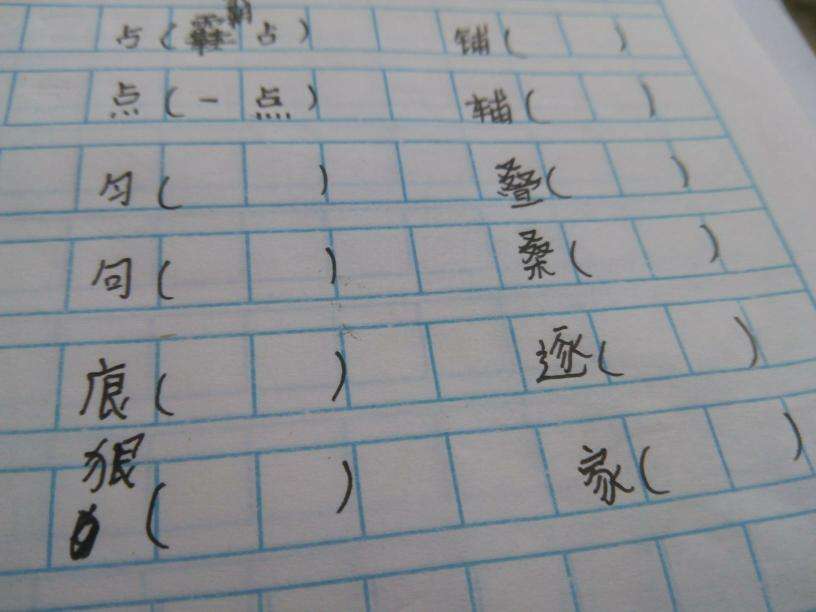 占( 占) 铺( )
点(一点) 辅( )
匀( ) 叠( )
句( ) 桑( )
痕( ) 逐( )
狠( ) 家( )